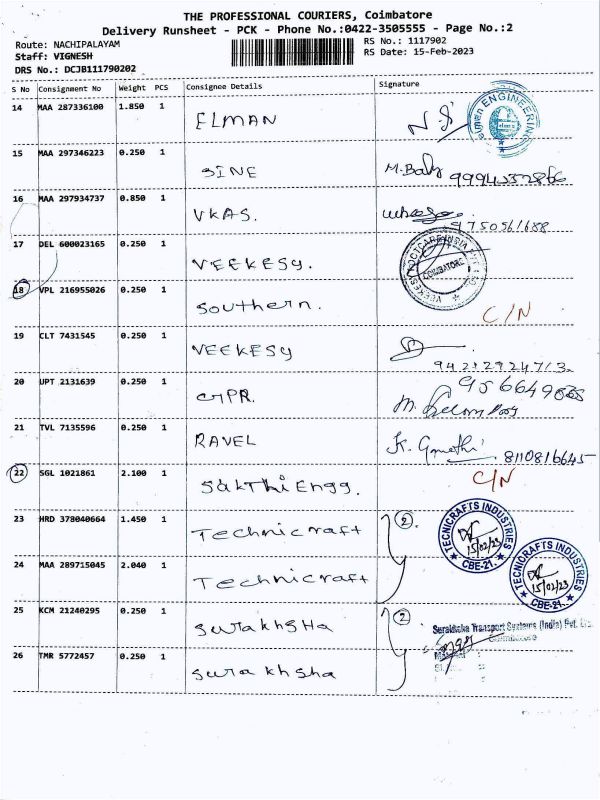 THE PROFESSIONAL COURIERS, Coimbatore
Delivery Runsheet - PCK - Phone No.:0422-3505555 - Page No.:2
Route: NACHIPALAYAM
Staff: VIGNESH
DRS No.: DCJB111790202
RS No.: 1117902
RS Date: 15-Feb-2023
S No Consignment No Weight PCS Consignee Details Signature
14 MAA 287336100 1.850 1 ELMAN
ENGINEERING
15 MAA 297346223 0.250 1 SINE
16 MAA 297934737 0.850 1 VKAS.
9750561688
17 DEL 600023165 0.250 1 VEEKESY.
COIMBATORE
18 VPL 216955026 0.250 1 Southern. C/N
19 CLT 7431545 0.250 1 VEEKESY
20 UPT 2131639 0.250 1 GPR.
21 TVL 7135596 0.250 1 RAVEL
8110816645
22 SGL 1021861 2.100 1 Sakthi Engg. C/N
23 HRD 378040664 1.450 1 Technicraft 2
TECNICRAFTS INDUSTRIES
15/02/23
CBE-21.
24 MAA 289715045 2.040 1 Technicraft
TECNICRAFTS INDUSTRIES
15/02/23
CBE-21.
25 KCM 21240295 0.250 1 SurakhSHa 2
Surakksha Transport Systems (India) Pvt. Ltd.
Coimbatore
26 TMR 5772457 0.250 1 Surakhsha